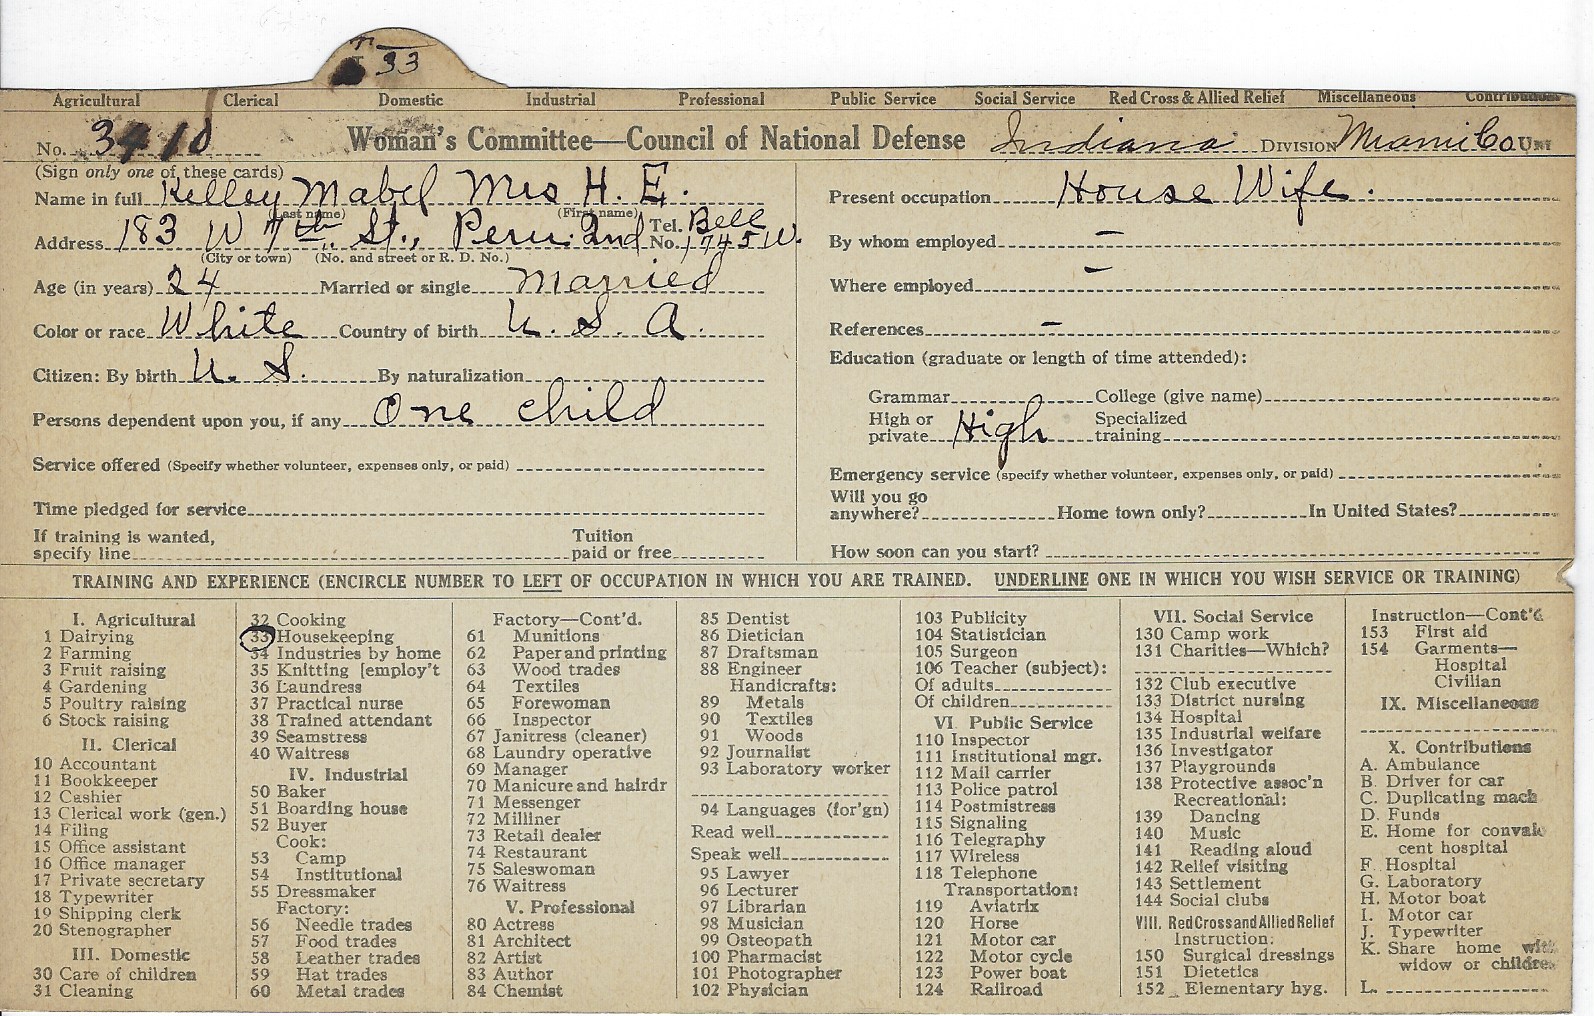 T 33
Agricultural Clerical Domestic Industrial Professional Public Service Social Service Red Cross & Allied Relief Miscellaneous Contributions
No. 3410 Woman's Committee—Council of National Defense Indiana DIVISION Miami Co UNIT
(Sign only one of these cards)
Name in full Kelley Mabel Mrs H. E.
(Last name) (First name)
Address 183 W 7th St., Peru. Ind Tel. No. Bell 1745 W.
(City or town) (No. and street or R. D. No.)
Age (in years) 24 Married or single Married
Color or race White Country of birth U. S. A.
Citizen: By birth U. S. By naturalization
Persons dependent upon you, if any One child
Service offered (Specify whether volunteer, expenses only, or paid)
Time pledged for service
If training is wanted,
specify line
Tuition
paid or free
Present occupation House Wife.
By whom employed –
Where employed –
References –
Education (graduate or length of time attended):
Grammar College (give name)
High or
private High
Specialized
training
Emergency service (specify whether volunteer, expenses only, or paid)
Will you go
anywhere? Home town only? In United States?
How soon can you start?
TRAINING AND EXPERIENCE (ENCIRCLE NUMBER TO LEFT OF OCCUPATION IN WHICH YOU ARE TRAINED. UNDERLINE ONE IN WHICH YOU WISH SERVICE OR TRAINING)
I. Agricultural
1 Dairying
2 Farming
3 Fruit raising
4 Gardening
5 Poultry raising
6 Stock raising
II. Clerical
10 Accountant
11 Bookkeeper
12 Cashier
13 Clerical work (gen.)
14 Filing
15 Office assistant
16 Office manager
17 Private secretary
18 Typewriter
19 Shipping clerk
20 Stenographer
III. Domestic
30 Care of children
31 Cleaning
32 Cooking
33 Housekeeping
34 Industries by home
35 Knitting [employ't
36 Laundress
37 Practical nurse
38 Trained attendant
39 Seamstress
40 Waitress
IV. Industrial
50 Baker
51 Boarding house
52 Buyer
Cook:
53 Camp
54 Institutional
55 Dressmaker
Factory:
56 Needle trades
57 Food trades
58 Leather trades
59 Hat trades
60 Metal trades
Factory—Cont'd.
61 Munitions
62 Paper and printing
63 Wood trades
64 Textiles
65 Forewoman
66 Inspector
67 Janitress (cleaner)
68 Laundry operative
69 Manager
70 Manicure and hairdr
71 Messenger
72 Milliner
73 Retail dealer
74 Restaurant
75 Saleswoman
76 Waitress
V. Professional
80 Actress
81 Architect
82 Artist
83 Author
84 Chemist
85 Dentist
86 Dietician
87 Draftsman
88 Engineer
Handicrafts:
89 Metals
90 Textiles
91 Woods
92 Journalist
93 Laboratory worker
94 Languages (for'gn)
Read well
Speak well
95 Lawyer
96 Lecturer
97 Librarian
98 Musician
99 Osteopath
100 Pharmacist
101 Photographer
102 Physician
103 Publicity
104 Statistician
105 Surgeon
106 Teacher (subject):
Of adults
Of children
VI Public Service
110 Inspector
111 Institutional mgr.
112 Mail carrier
113 Police patrol
114 Postmistress
115 Signaling
116 Telegraphy
117 Wireless
118 Telephone
Transportation:
119 Aviatrix
120 Horse
121 Motor car
122 Motor cycle
123 Power boat
124 Railroad
VII. Social Service
130 Camp work
131 Charities—Which?
132 Club executive
133 District nursing
134 Hospital
135 Industrial welfare
136 Investigator
137 Playgrounds
138 Protective assoc'n
Recreational:
139 Dancing
140 Music
141 Reading aloud
142 Relief visiting
143 Settlement
144 Social clubs
VIII. Red Cross and Allied Relief
Instruction:
150 Surgical dressings
151 Dietetics
152 Elementary hyg.
Instruction—Cont'd
153 First aid
154 Garments—
Hospital
Civilian
IX. Miscellaneous
X. Contributions
A. Ambulance
B. Driver for car
C. Duplicating mach
D. Funds
E. Home for convales
cent hospital
F. Hospital
G. Laboratory
H. Motor boat
I. Motor car
J. Typewriter
K. Share home with
widow or children
L.